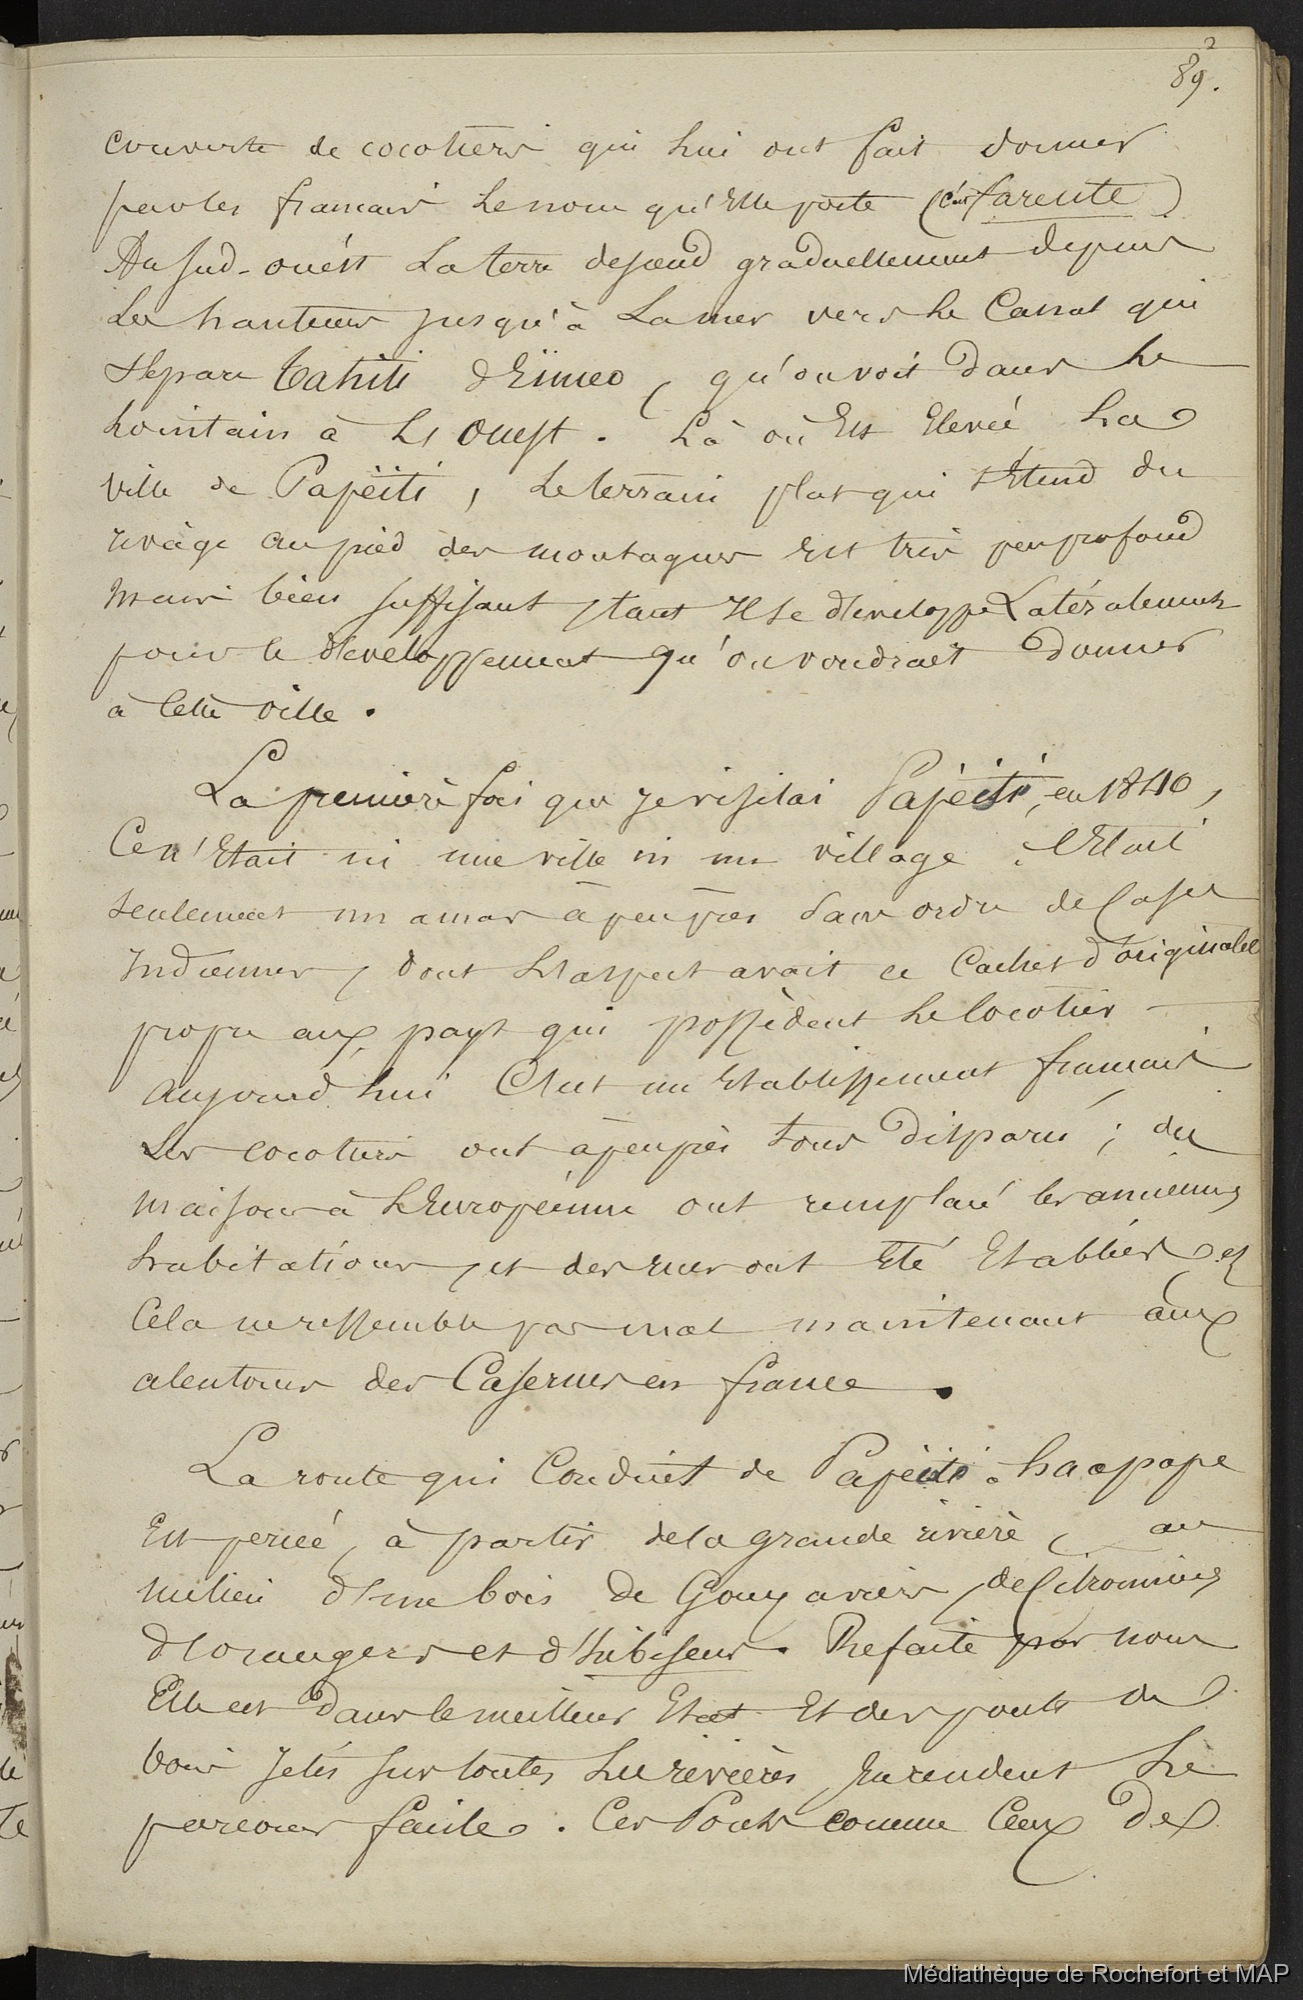 2
89.
couverte de cocotiers qui lui ont fait donner
par les français le nom qu'Elle porte (
Au sud-ouést La terre descend graduellement depuis
Les hauteurs jusqu'à La mer vers le Canal qui
sépare tahiti d'Eïmeo, qu'on voit dans le
lointain à L'Ouest. Là où Est Elevée La
ville de Papëiti, le terrain plat qui s'étend du
rivage au pied des montagnes Est très peu profond
Mais bien suffisant, tant Il se développe Latéralement
pour le développement qu'on voudrait donner
à Cette ville.
La première fois que je visitai Papéiti, en 1840,
Ce n'Etait ni une ville ni un village; C'Etait
seulement un amas à peu près sans ordre de Cases
Indiennes, dont L'aspect avait ce Cachet d'original
propre aux pays qui possèdent le Cocotier —
Aujourd'hui C'est un Etablissement français
Les cocotiers ont à peu près tous disparu; des
maisons à L'Européenne ont remplacé les anciennes
habitations, et des rues ont Eté Etablies, et
Cela ne ressemble pas mal maintenant aux
alentours des Casernes en france.
La route qui Conduit de Papéiti à haapape
Est percée, à partir de la grande rivière, au
milieu d'une bois de Gouyaviers, de Citronniers
d'orangers et d'hibiscus. Refaite par nous
Elle est dans le meilleur Etat Et des ponts de
bois jetés sur toutes les rivières, En rendent le
parcours facile. Ces Ponts comme Ceux de
Médiathèque de Rochefort et MAP